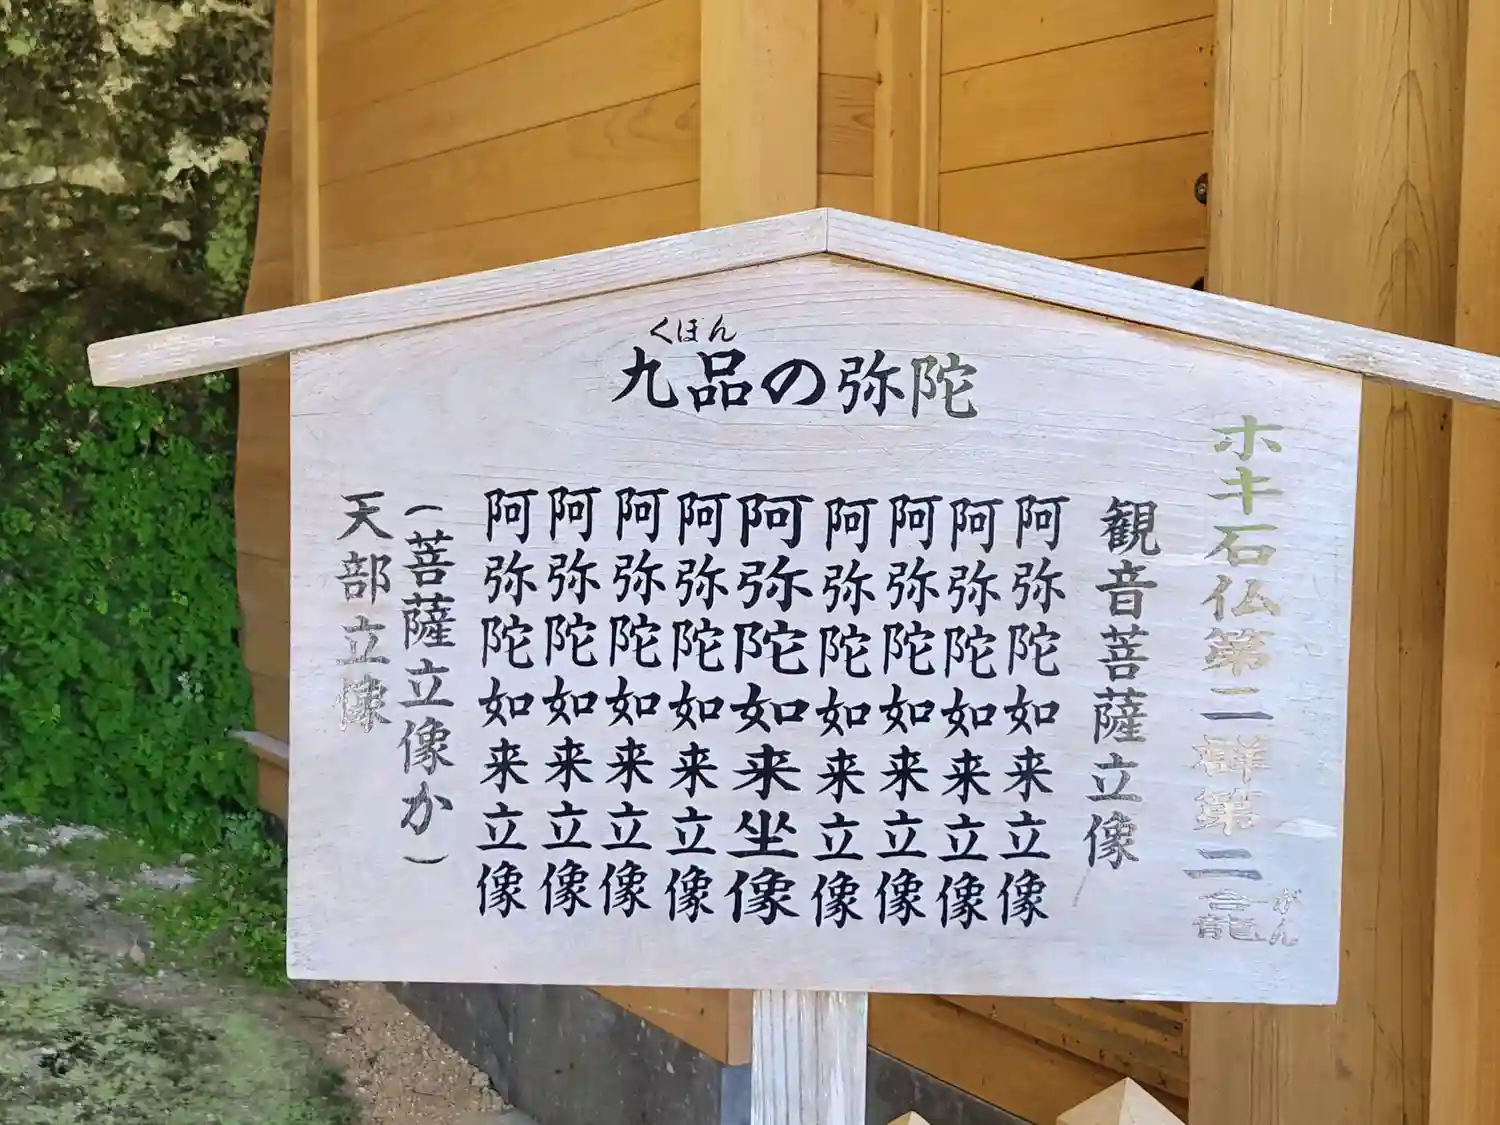 くほん
九品の弥陀
ホキ石仏第二群第二龕
がん
観音菩薩立像
阿弥陀如来立像
阿弥陀如来立像
阿弥陀如来立像
阿弥陀如来立像
阿弥陀如来坐像
阿弥陀如来立像
阿弥陀如来立像
阿弥陀如来立像
阿弥陀如来立像
(菩薩立像か)
天部立像